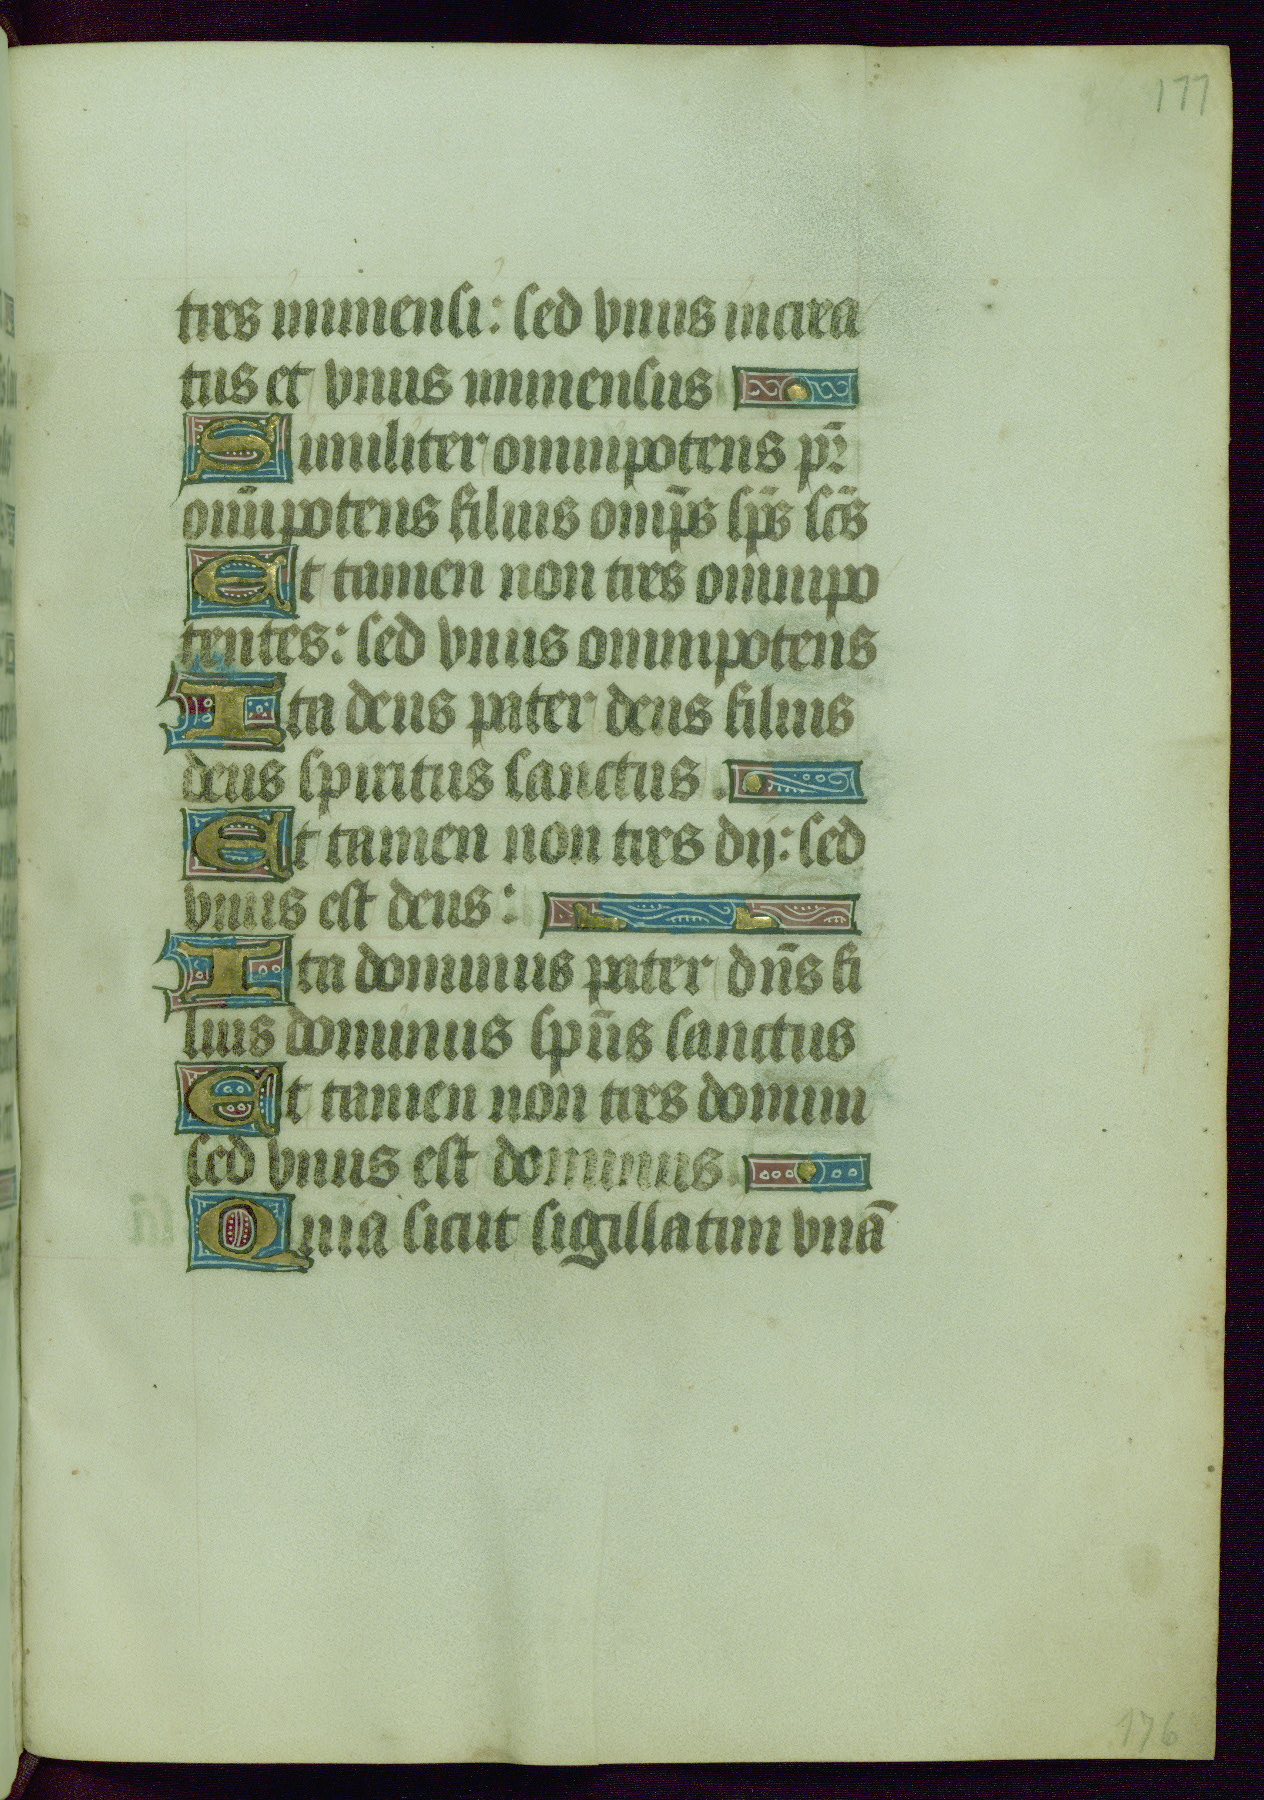 177
tres inmensi: sed vnus increa
tus et vnus inmensus
Similiter omnipotens pr̄
omīpotens filius omp̄s sp̄s sc̄s
Et tamen non tres omnipo
tentes: sed vnus omnipotens
Ita deus pater deus filius
deus spiritus sanctus.
Et tamen non tres dij: sed
vnus est deus:
Ita dominus pater dn̄s fi
lius dominus spūs sanctus
Et tamen non tres domini
sed vnus est dominus.
Quia sicut sigillatim vnā
176